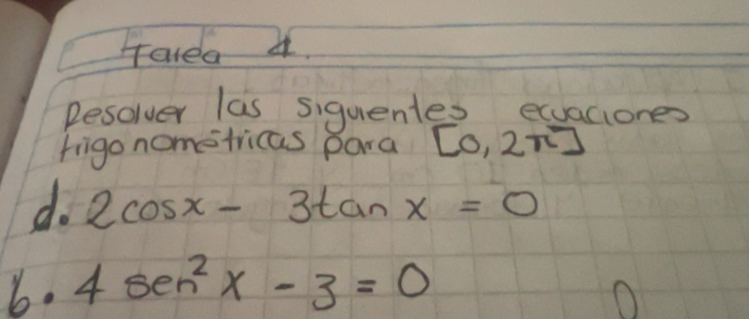 Tarea 4.
Resolver las siguientes ecuaciones
trigonométricas para [0, 2π]
d. 2cosx - 3tan x = 0
b. 4 sen² x - 3 = 0